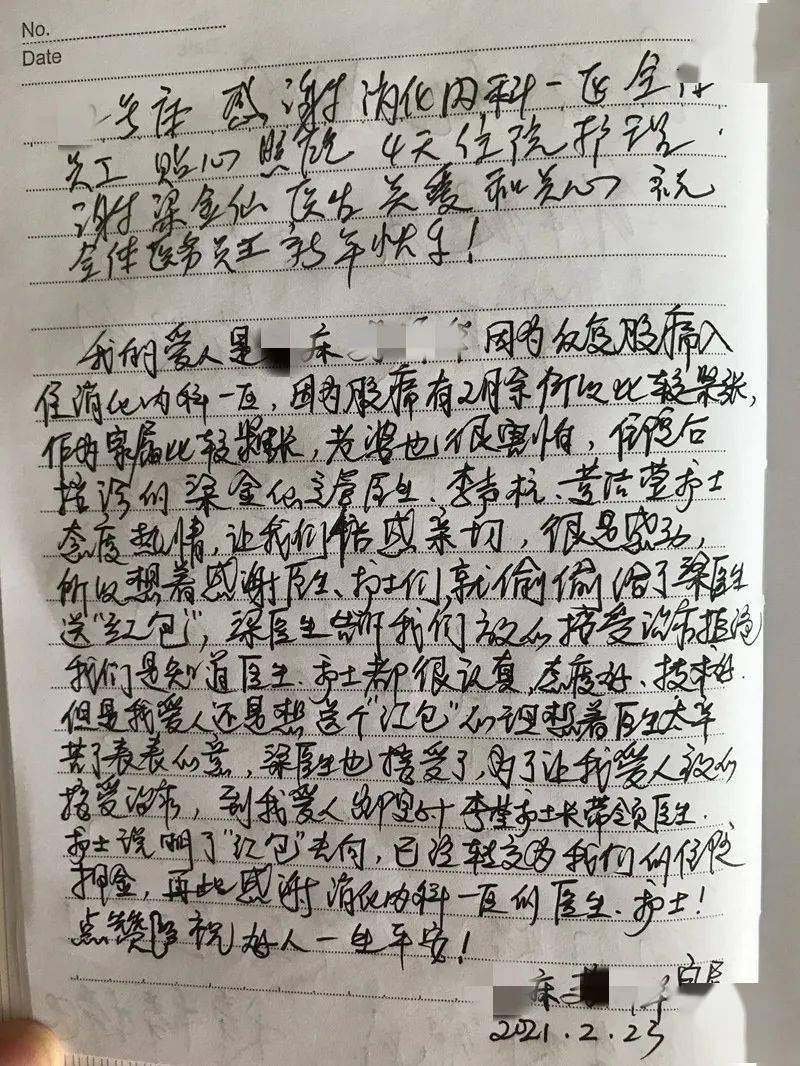 No.
Date
号床 感谢消化内科一区全
员工贴心照顾 4天住院护理.
谢谢梁金仙医生关爱和关心 祝
全体医务员工新年快乐!
我的爱人是 床 因为反复腹痛入
住消化内科一区,因为腹痛有2月余所以比较紧张,
作为家属比较紧张,老婆也很害怕,住院后
接诊的梁金仙主管医生、李 、黄洁莹护士
态度热情,让我们倍感亲切,很是感动,
所以想着感谢医生、护士们,就偷偷给了梁医生
送"红包",梁医生告诉我们放心接受治疗拒绝
我们是知道医生.护士都很认真,态度好、技术好.
但是我爱人还是想送个"红包"心理想着医生太辛
苦了表表心意,梁医生也接受了,为了让我爱人放心
接受治疗,到我爱人出院时李莹护士长带领医生.
护士说明了"红包"去向,已经转交为我们的住院
押金,再此感谢消化内科一区的医生.护士!
点赞 祝好人一生平安!
床 家属
2021.2.25